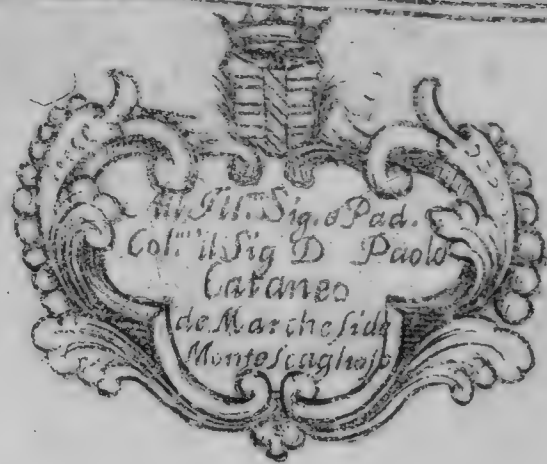 All Ill.mo Sig. e Pad.
Col.mo il Sig D Paolo
Cataneo
de Marchesi di
Monte Scaglioso